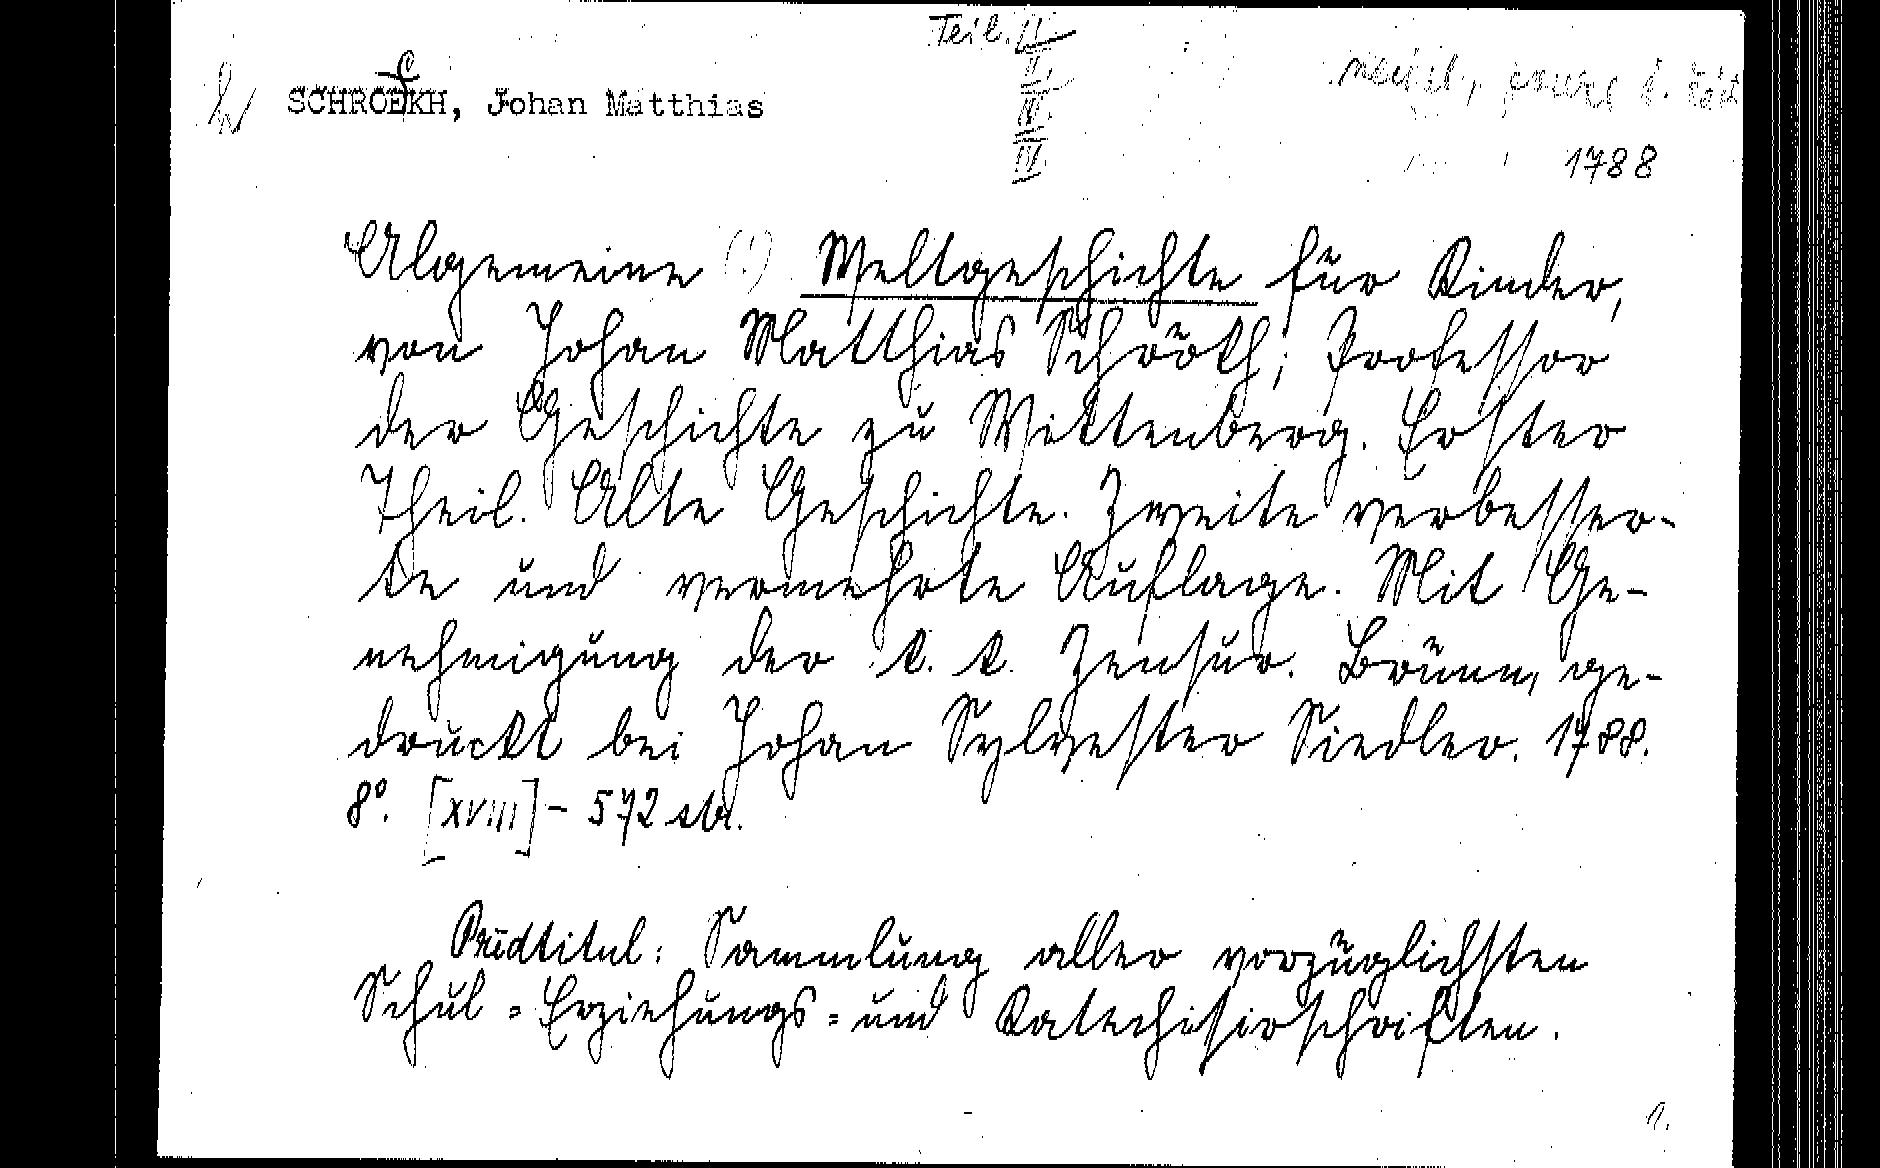 Teil. II
II.
III.
IV.
SCHROECKH, Johan Matthias
1788
Algemeine (!) Weltgeschichte für Kinder,
von Johan Matthias Schrökh; Professor
der Geschichte zu Wittenberg. Erster
Theil. Alte Geschichte. Zweite verbesser-
te und vermehrte Auflage. Mit Ge-
nehmigung der k. k. Zensur. Brünn, ge-
druckt bei Johan Sylvester Siedler. 1788.
8°. [XVIII] - 572 str.
Předtitul: Sammlung aller vorzüglichsten
Schul = Erziehungs = und Katechisirschriften.
1.